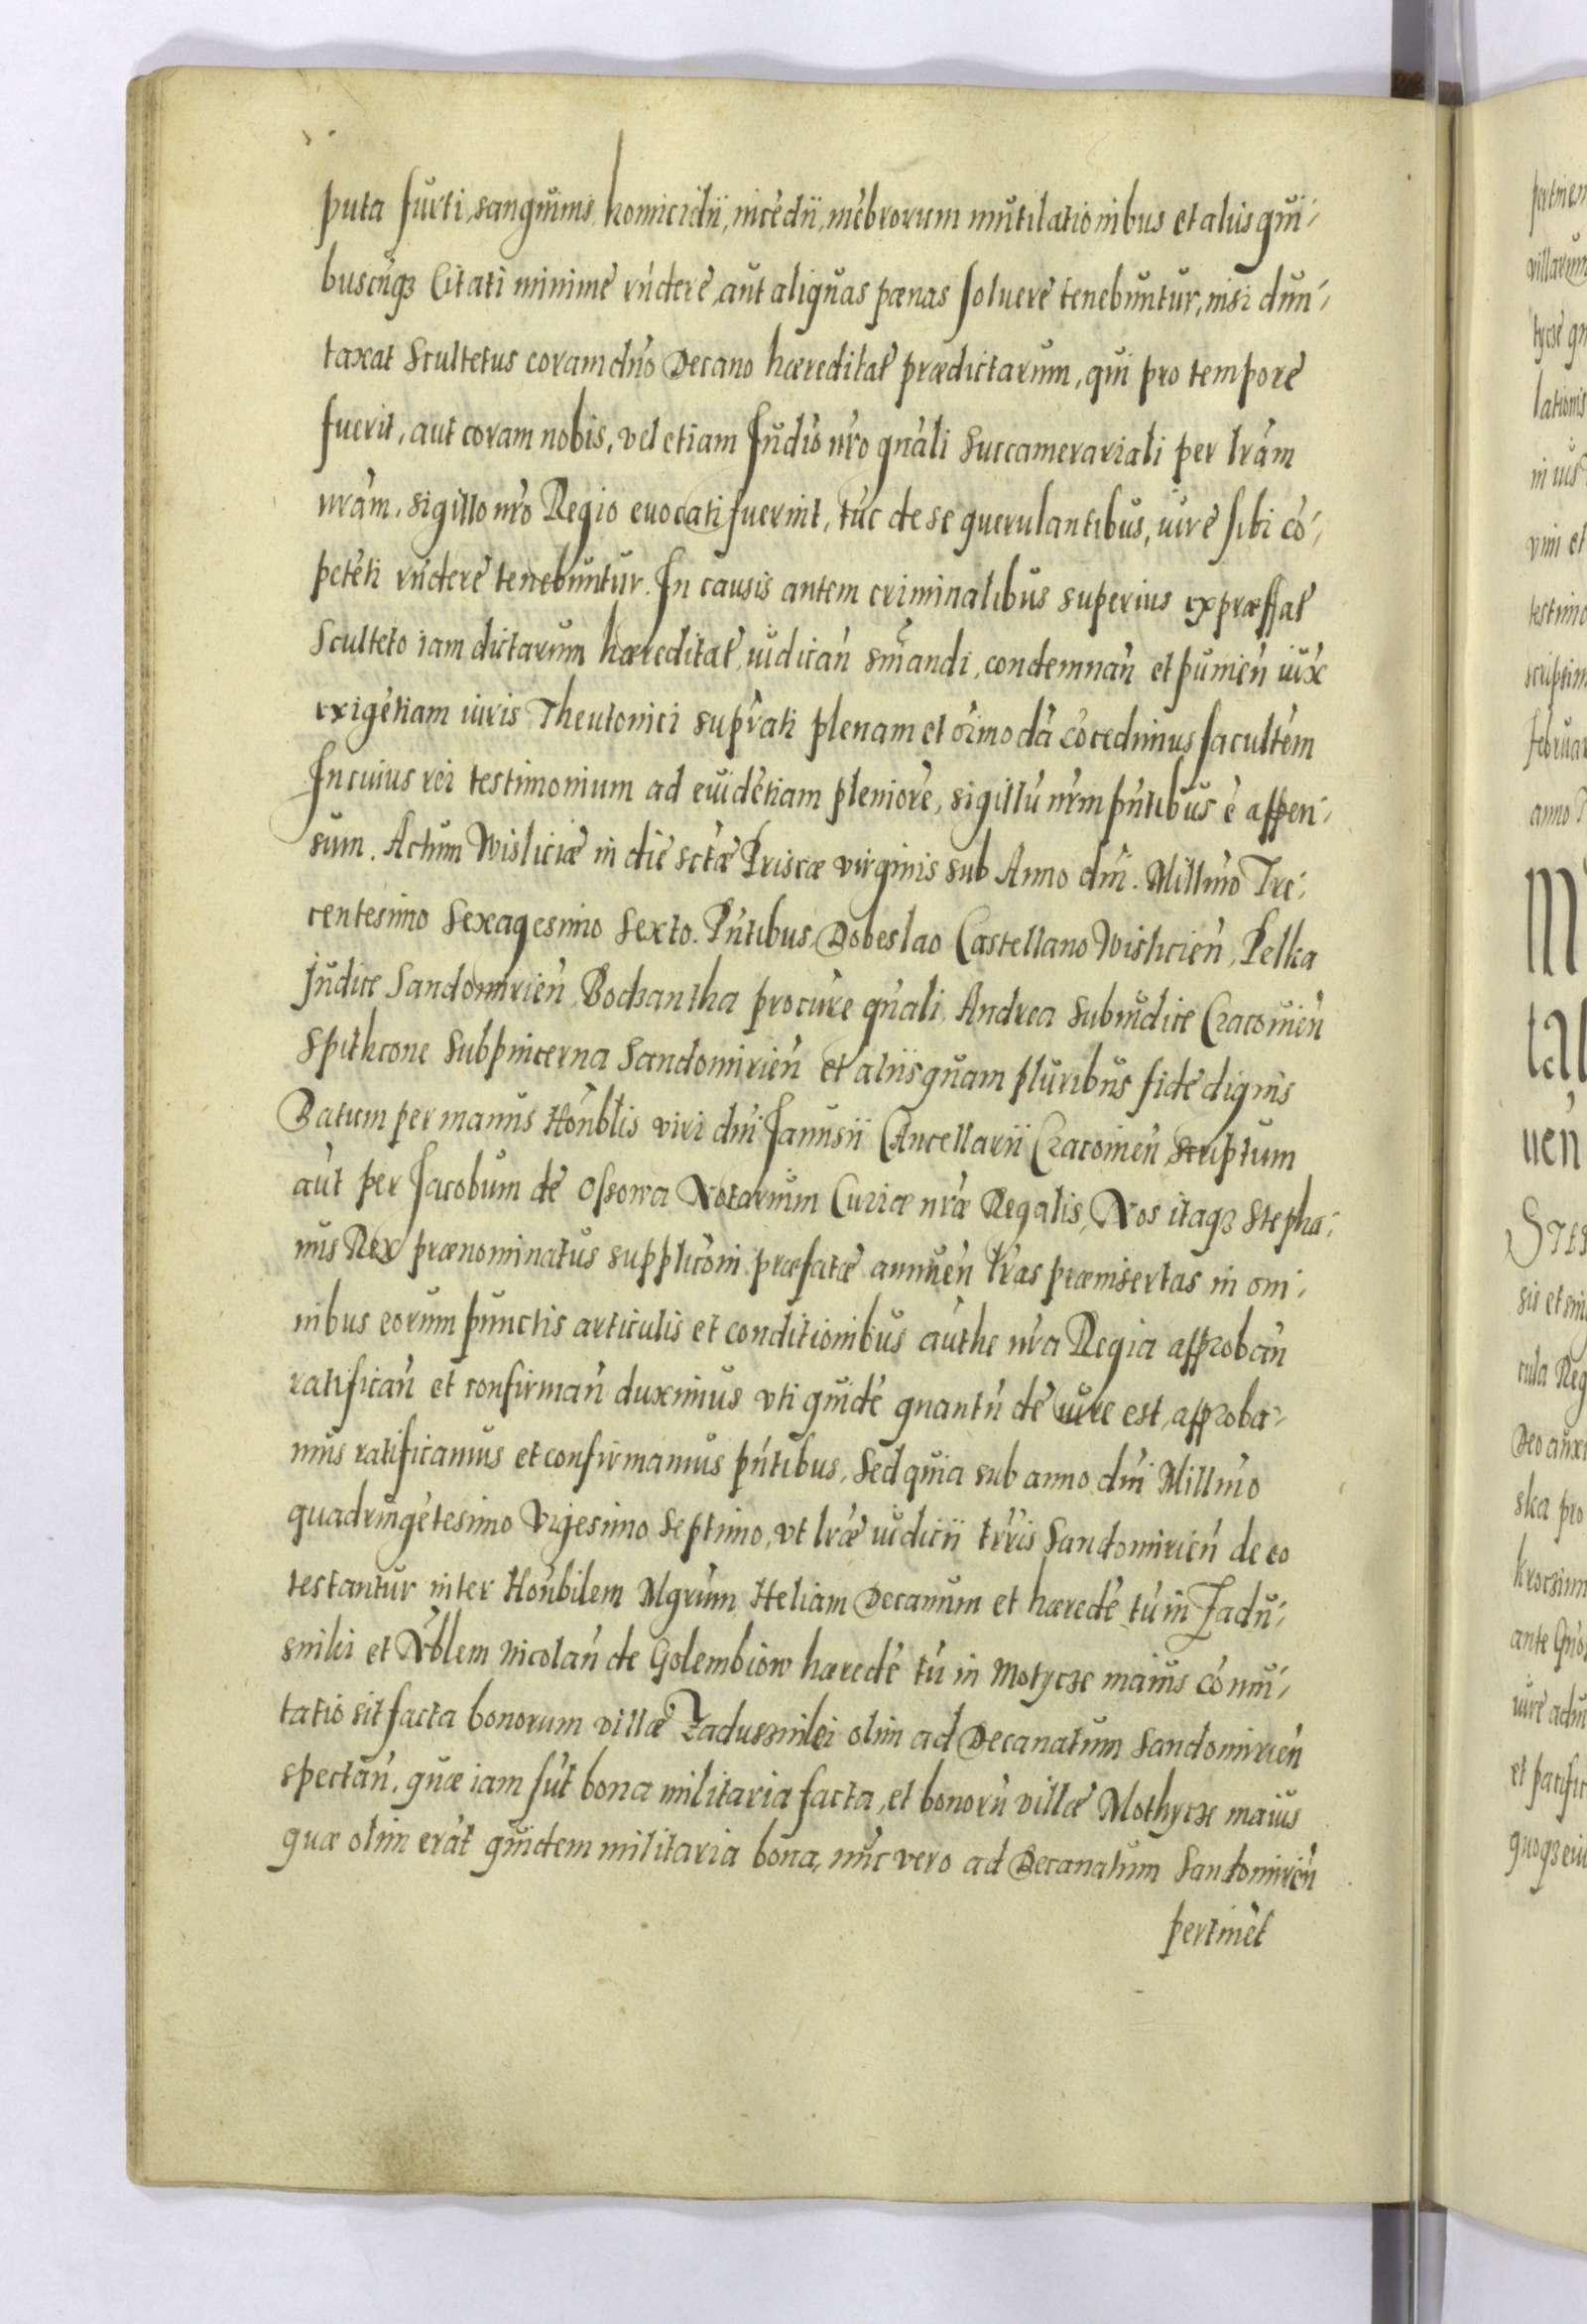 puta furti, sanguinis, homicidii, incēdii, mēbrorum mutilationibus et aliis qui-
buscūq3 Citati minime rńdere, aut aliquas pœnas soluere tenebuntur, nisi dun-
taxat Scultetus coram dńo Decano hæreditat prædictarum, qui pro tempore
fuerit, aut coram nobis, vel etiam Iudio nŕo gńali Succamerariali per lŕam
nŕam, sigillo nŕo Regio euocati fuerint, tūc de se querulantibus, iure sibi cō-
petēti rńdere tenebuntur. In causis autem criminalibus superius expræssat
Sculteto iam dictarum hæreditat, iudicań smandi, condemnań et punień iux
exigētiam iuris Theutonici supŕati plenam et oīmodā cōcedimus facultēm
In cuius rei testimonium ad euidētiam pleniore, sigillū nŕm pńtibus ē appen-
sum. Actum Wisliciæ in die sctæ Priscæ virginis sub Anno dńi. Millmo Tre-
centesimo Sexagesimo Sexto. Pńtibus Dobeslao Castellano Wislicień, Pelka
Judice Sandomirień, Bochantha procure gńali, Andrea Subiudice Cracouień
Spithcone Subpincerna Sandomirień et aliis quam pluribus fide dignis
Datum per manus Hońblis viri dńi Janusii Cancellarii Cracouień Scriptum
aūt per Jacobum de Ossowa Notarium Curiæ nŕæ Regalis, Nos itaq3 Stepha-
nus Rex prænominatus supplicōni præfatæ annueń lŕas præinsertas in om-
nibus eorum punctis articulis et conditionibus authe nŕa Regia approbań
ratificań et confirmań duximus vti quidē quantū de iure est, approba-
mus ratificamus et confirmamus pńtibus. Sed quia sub anno dńi Millmo
quadringētesimo Vigesimo Septimo, vt lŕæ iudicii tŕris Sandomirień de eo
testantur inter Hońbilem Mgrum Heliam Decanum et hæredē tū in Zadu-
sniki et Nblem Nicolaū de Golembiow hæredē tū in Motycze maius cōmu-
tatio sit facta bonorum villæ Zaduszniki olim ad Decanatum Sandomirień
spectań, quæ iam sūt bona militaria facta, et bonorū villæ Mothycze maius
quæ olim erāt quidem militaria bona, nūc vero ad Decanatum Sandomirień
pertinēt